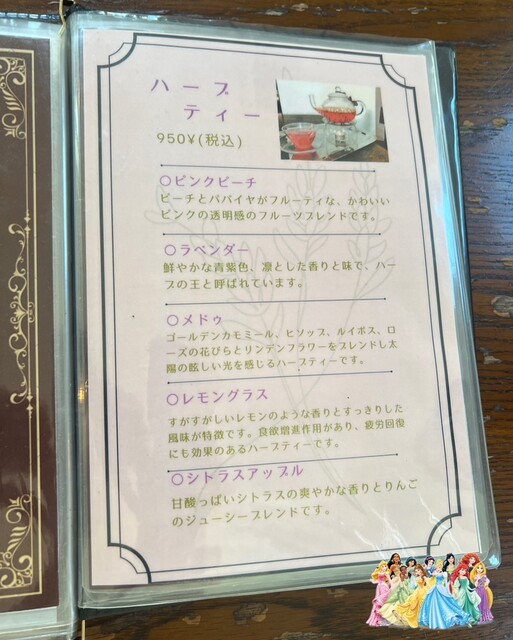 ハーブ
ティー
950¥(税込)
○ピンクピーチ
ピーチとパパイヤがフルーティな、かわいい
ピンクの透明感のフルーツブレンドです。
○ラベンダー
鮮やかな青紫色、凛とした香りと味で、ハー
ブの王と呼ばれています。
○メドゥ
ゴールデンカモミール、ヒソップ、ルイボス、ロ
ーズの花びらとリンデンフラワーをブレンドし太
陽の眩しい光を感じるハーブティーです。
○レモングラス
すがすがしいレモンのような香りとすっきりした
風味が特徴です。食欲増進作用があり、疲労回復
にも効果のあるハーブティーです。
○シトラスアップル
甘酸っぱいシトラスの爽やかな香りとりんご
のジューシーブレンドです。